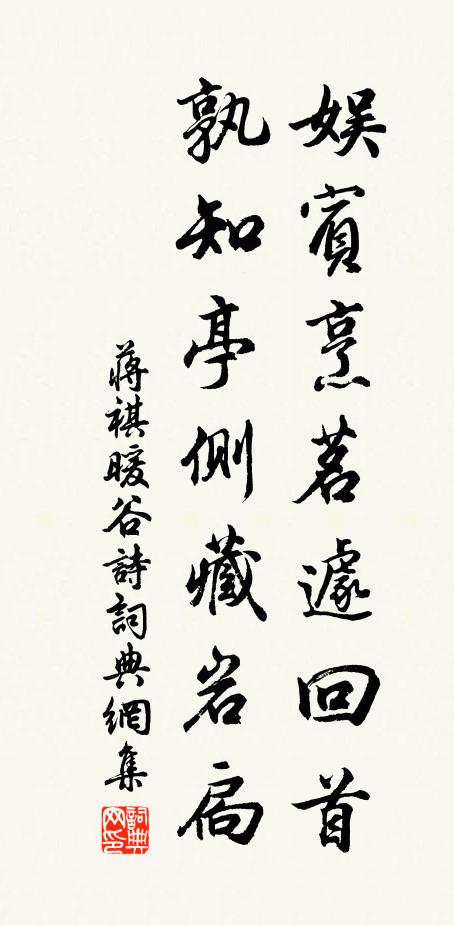 娛賓烹茗遽回首
孰知亭側藏岩扃
蔣祺暖谷詩詞典網集
詞典網印